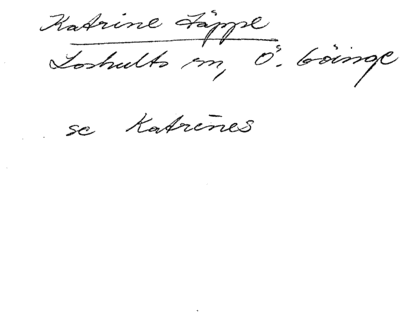 Katrine Täppe
Loshults sn, Ö. Göinge
se Katrines